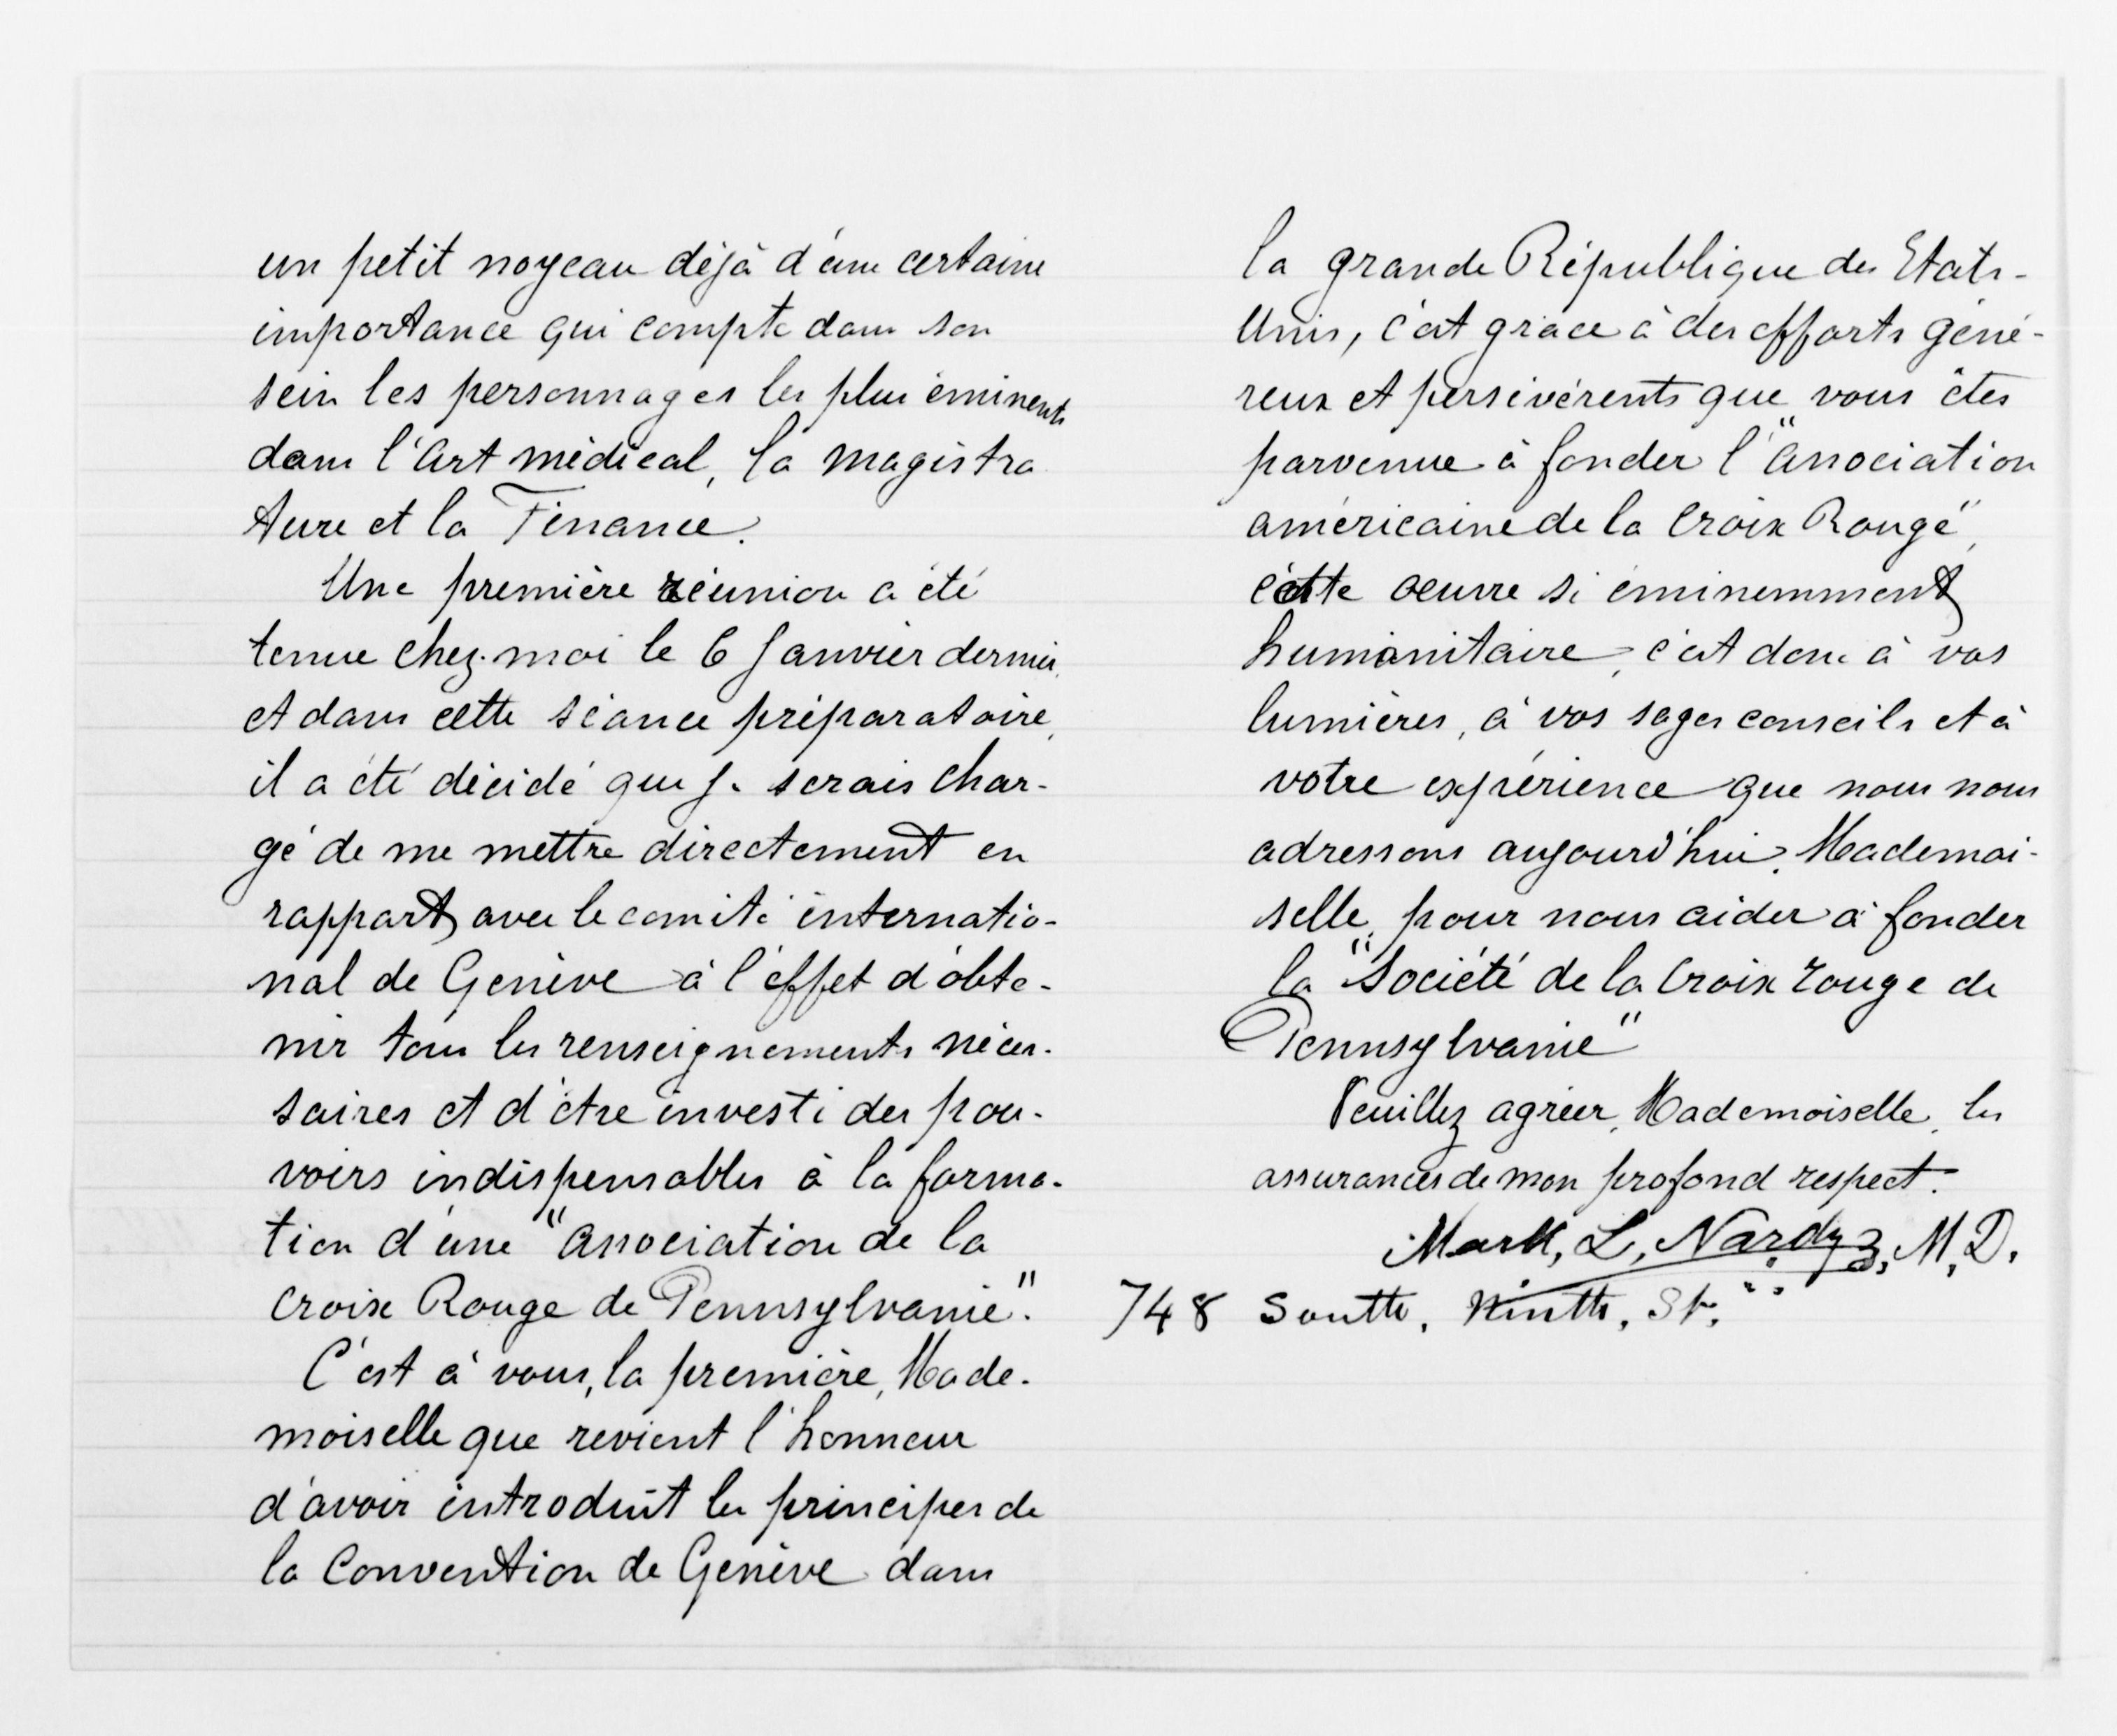 un petit noyeau déjà d'une certaine
importance qui compte dans son
sein les personnages les plus éminents
dans l'Art médical, la magistra
ture et la Finance.
Une première réunion a été
tenue chez-moi le 6 Janvier dernier,
et dans cette séance préparatoire,
il a été décidé que je serais char-
gé de me mettre directement en
rapport avec le comité internatio-
nal de Genève à l'éffet d'obte-
nir tous les renseignements néces-
saires et d'être investi des pou-
voirs indispensables à la forma-
tion d'une "Association de la
Croix Rouge de Pennsylvanie".
C'est à vous, la première, Made-
moiselle que revient l'honneur
d'avoir introduit les principes de
la Convention de Genève dans
la grande République des Etats-
Unis, c'est grâce à des efforts géné-
reux et persévérents que vous êtes
parvenue à fonder l'"Association
américaine de la Croix Rouge",
cette oeuvre si éminemment
humanitaire, c'est donc à vos
lumières, à vos sages conseils et à
votre expérience que nous nous
adressons aujourd'hui, Mademoi-
selle, pour nous aider à fonder
la "Société de la Croix rouge de
Pennsylvanie"
Veuillez agréer, Mademoiselle, les
assurances de mon profond respect.
Mark, L, Nardyz, M, D.
748 South, Ninth, St.